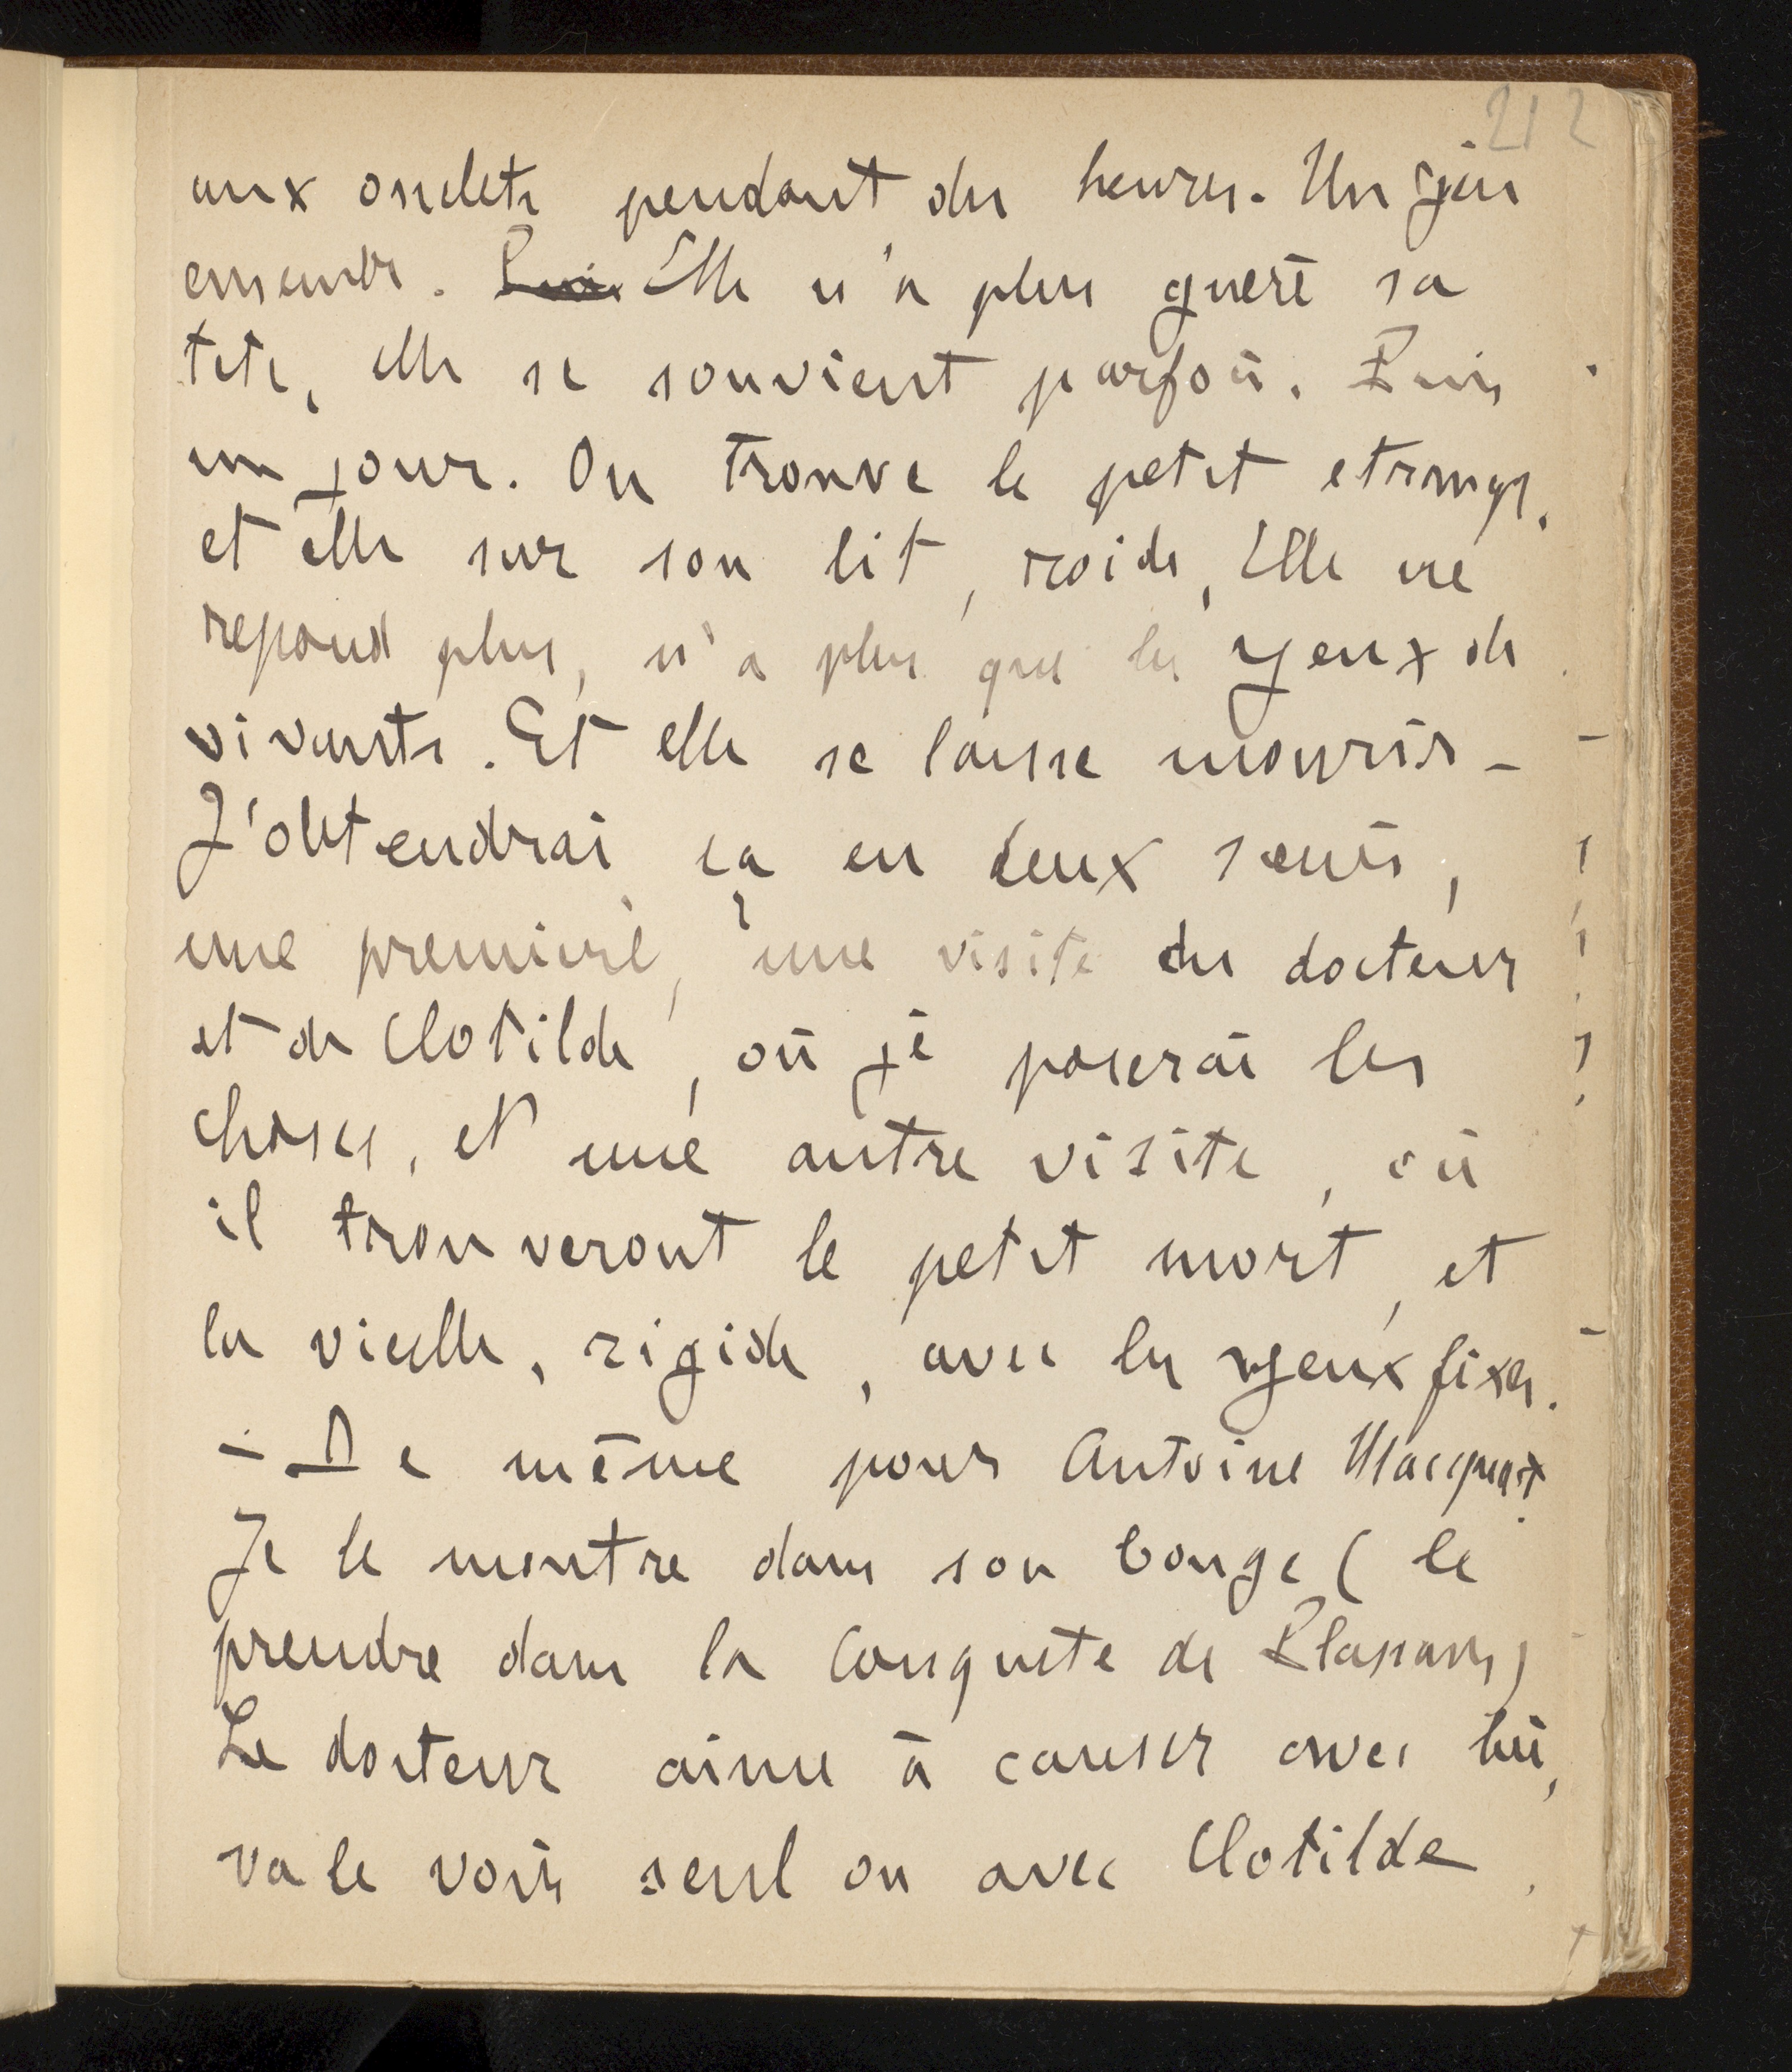 212
aux osselets pendant des heures. Un jeu
ensemble. Puis Elle n'a plus guère sa
tête, elle se souvient parfois. Puis
un jour. On trouve le petit étranglé,
et elle sur son lit, roide, Elle ne
répond plus, n'a plus que les yeux de
vivants. Et elle se laisse mourir –
J'obtendrai ça en deux scènes,
une première, une visite du docteur
et de Clotilde, où je poserai les
choses, et une autre visite, où
il trouveront le petit mort, et
la vieille, rigide, avec les yeux fixes.
– De même pour Antoine Macquart.
Je le montre dans son bouge (le
prendre dans la Conquête de Plassans)
Le docteur aime à causer avec lui,
va le voir seul ou avec Clotilde.